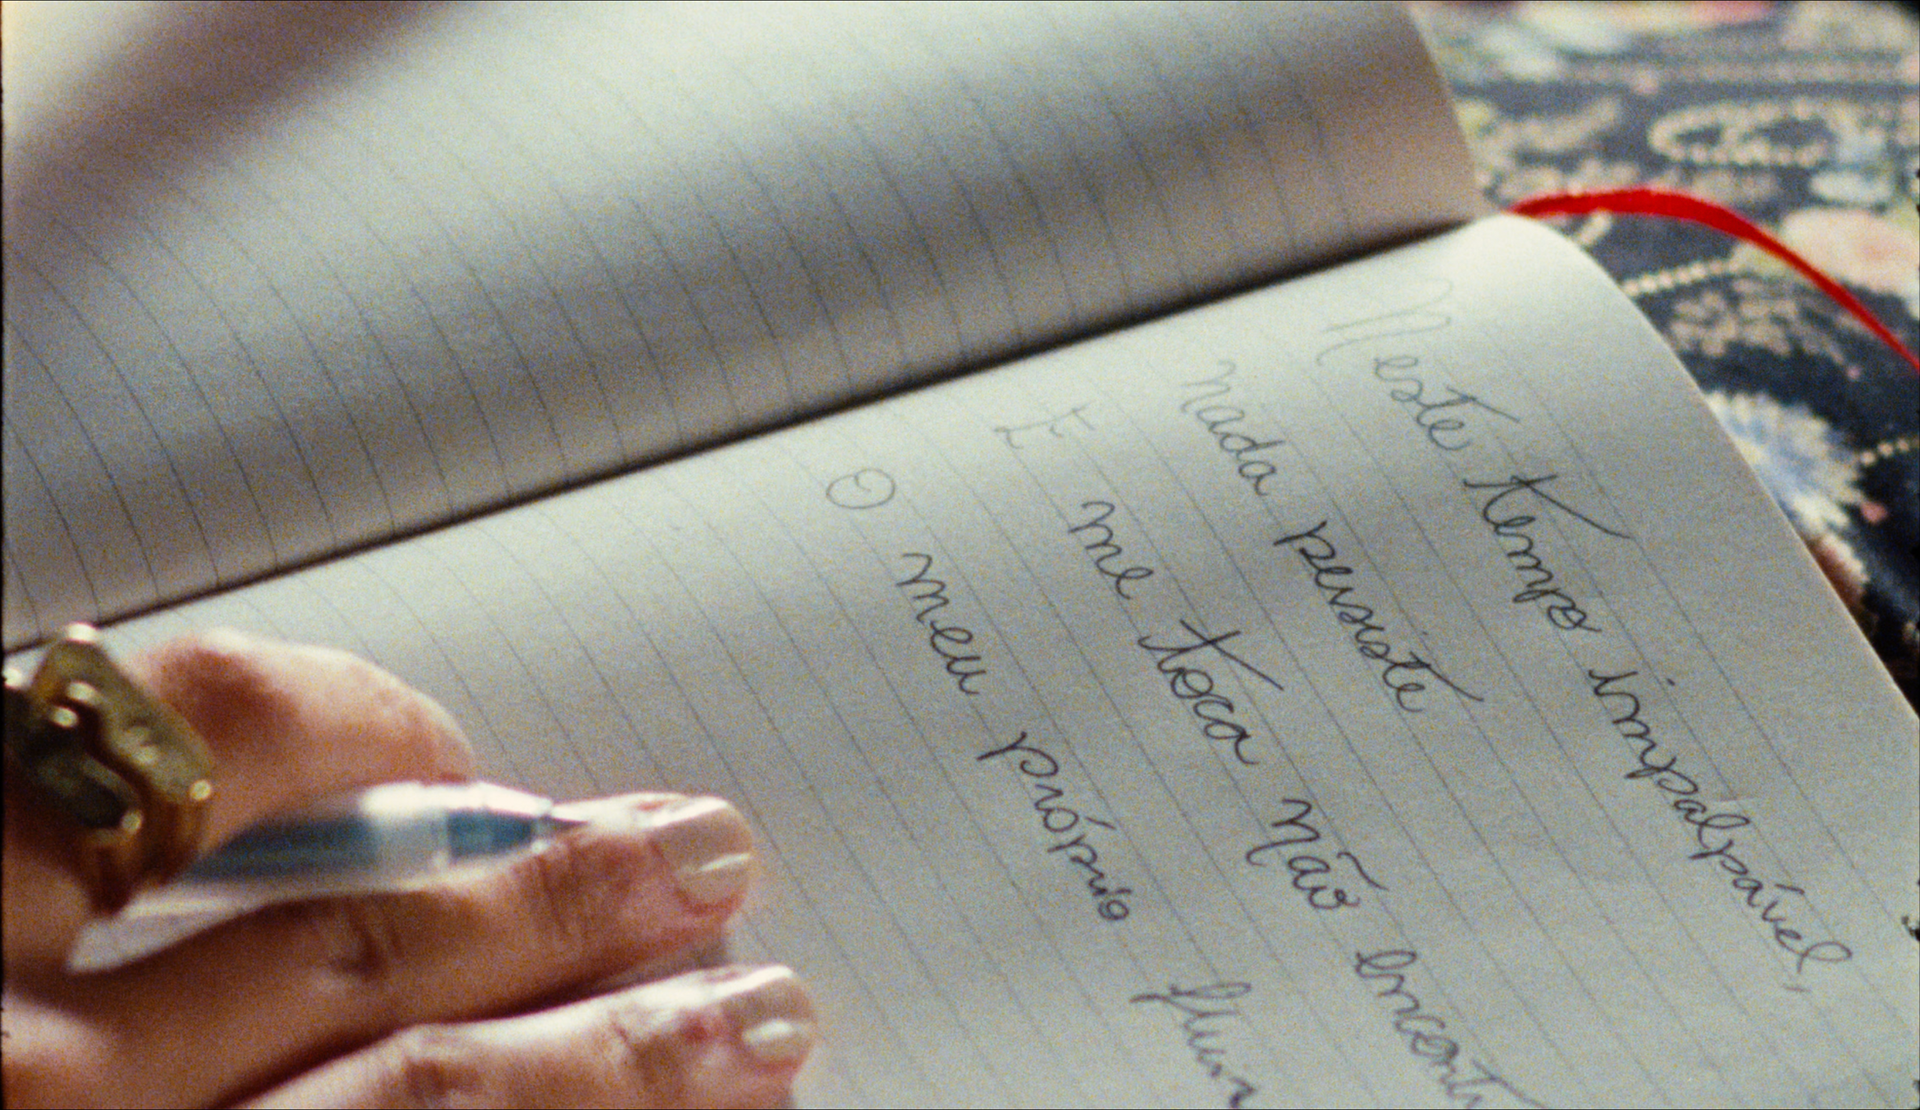 Neste tempo impalpável,
nada persiste
E me toca não encont
O meu próprio fluir